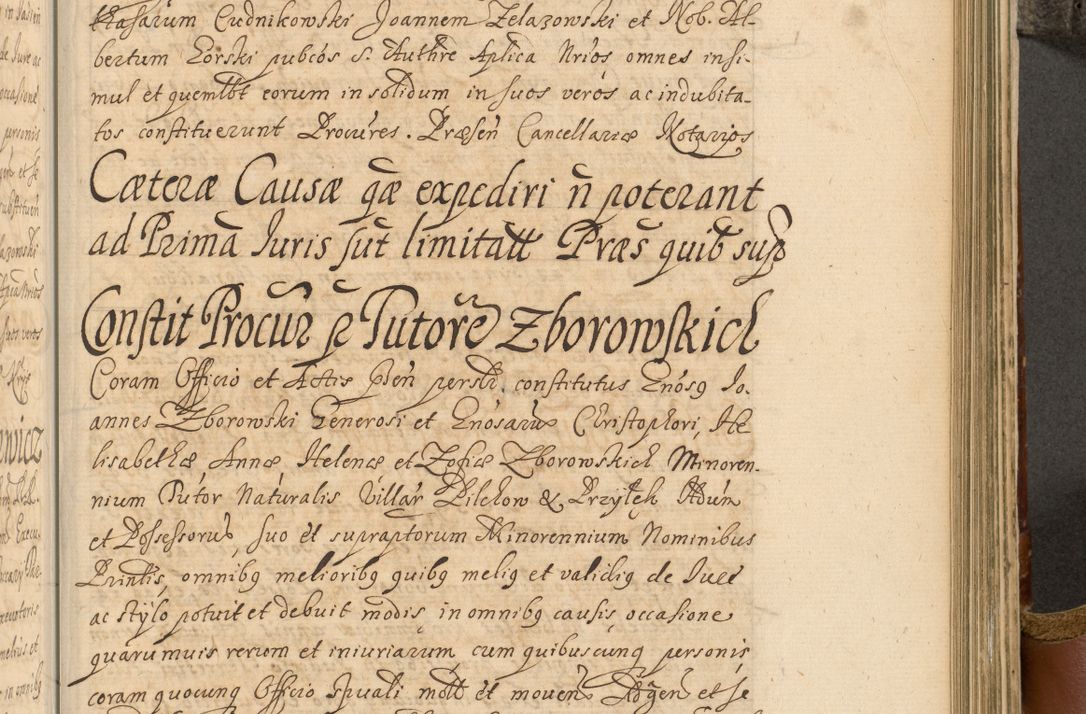 Casarum Cudnikowski Joannem Zelazowski et Nob. Al-
bertum Gorski pubcos S. Authre Aplica Nrios omnes insi-
mul et quemlbt eorum in solidum in suos veros ac indubita-
tos constituerunt Procures. Præsen Cancellariæ Notarios
Cæteræ Causæ qæ expediri n poterant
ad Prima Iuris sut limitatt Præs quib sup
Constit Procur p Tutore Zborowskich
Coram Officio et Actis psen persl. constitutus Gnosq Jo-
annes Zborowski Generosi et Gnosarum Christophori, He-
lisabethæ Annæ Helenæ et Zofiæ Zborowskich Minoren-
nium Tutor Naturalis Villar Pilchow & Przyłęk
et Possessorus, suo et supraptorum Minorennium Nominibus
Printis, omnibq melioribq quibq meliq et validiq de Iure
ac stylo potuit et debuit modis, in omnibq causis, occasione
quarumuis rerum et iniuriarum, cum quibuscunq personis
coram quocunq Officio Spuali mott et mouen Adgen et se